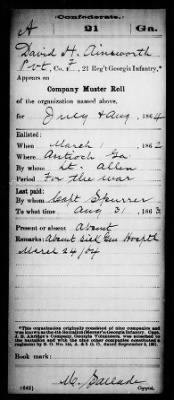 Confederate.
A 21 Ga.
David H. Ainsworth
Pvt, Co. F, 21 Reg't Georgia Infantry.*
Appears on
Company Muster Roll
of the organization named above,
for July & Aug, 1864
Enlisted:
When March 1, 1862
Where Antioch Ga
By whom Lt. Allen
Period For the war
Last paid:
By whom Capt Spurrer
To what time Aug 31, 1863
Present or absent Absent
Remarks: Absent sick Gen Hospth
March 24/64
*This organization originally consisted of nine companies and was
Book mark:
(642)
Copyist.